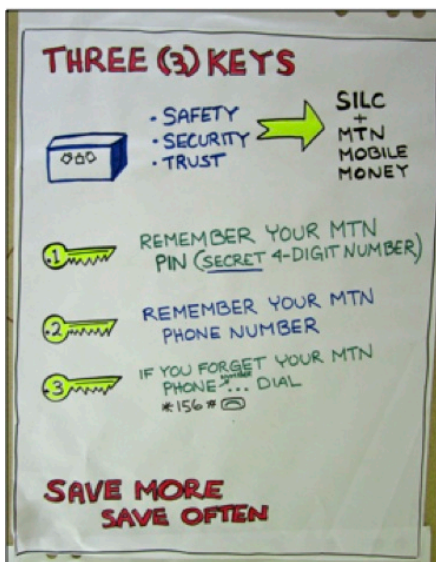 THREE (3) KEYS
• SAFETY
• SECURITY
• TRUST
SILC
+
MTN
MOBILE
MONEY
1
REMEMBER YOUR MTN
PIN (SECRET 4-DIGIT NUMBER)
2
REMEMBER YOUR MTN
PHONE NUMBER
3
IF YOU FORGET YOUR MTN
NUMBER
PHONE ... DIAL
*156#
SAVE MORE
SAVE OFTEN